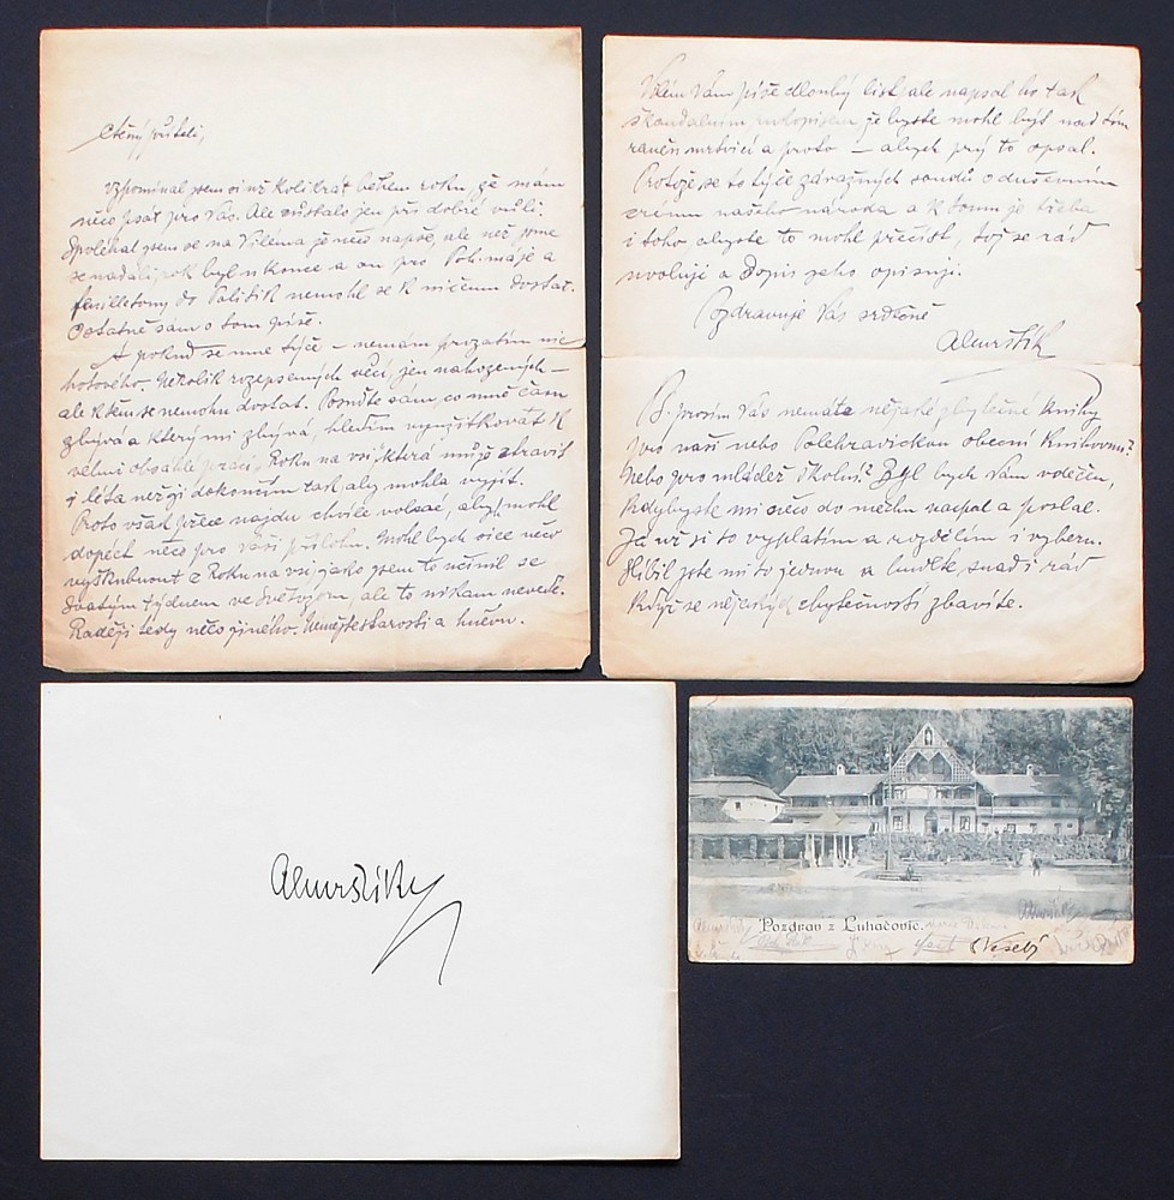 Ctěný příteli,
vzpomínal jsem si už kolikrát během roku, že mám
něco psát pro Vás. Ale zůstalo jen při dobré vůli.
Spoléhal jsem se na Viléma že něco napíše, ale než jsme
se nadáli, rok byl u konce a on pro Pok. máje a
feuilletony do Politik nemohl se k ničemu dostat.
Ostatně sám o tom píše.
A pokud se mne týče – nemám prozatím nic
hotového. Několik rozepsaných věcí, jen nahozených –
ale k těm se nemohu dostat. Posuďte sám, co mně času
zbývá a který mi zbývá, hledím využitkovat k
velmi obsáhlé práci, Roku na vsi, která může ztrávit
i léta než ji dokončím tak aby mohla vyjít.
Proto však přece najdu chvíle volné, abych mohl
dopéct něco pro Vaši přílohu. Mohl bych sice něco
vyškubnout z Roku na vsi, jako jsem to učinil se
Svatým týdnem ve Světozoru, ale to nikam nevede.
Raději tedy něco jiného. Nemějte starosti a hněvu.
Vilém Vám píše dlouhý list, ale napsal ho tak
škandálním rukopisem že byste mohl být nad tím
raněn mrtvicí a proto – abych prý to opsal.
Protože se to týče závažných soudů o duševním
zřízení našeho národa a k tomu je třeba
i toho abyste to mohl přečíst, svoj se rád
uvoluji a Dopis jeho opisuji.
Pozdravuje Vás srdečně
AMrštík
P.S. prosím Vás nemáte nějaké zbytečné knihy
pro naši nebo Polehradickou obecní knihovnu?
Nebo pro mládež školní? Byl bych Vám vděčen,
kdybyste mi něco do měchu nacpal a poslal.
Já už si to vyplatím a rozdělím i vyberu.
Slíbil jste mi to jednou a budete snad i rád
když se nějakých zbytečností zbavíte.
AMrštík
Pozdrav z Luhačovic.
AMrštík
Veselý